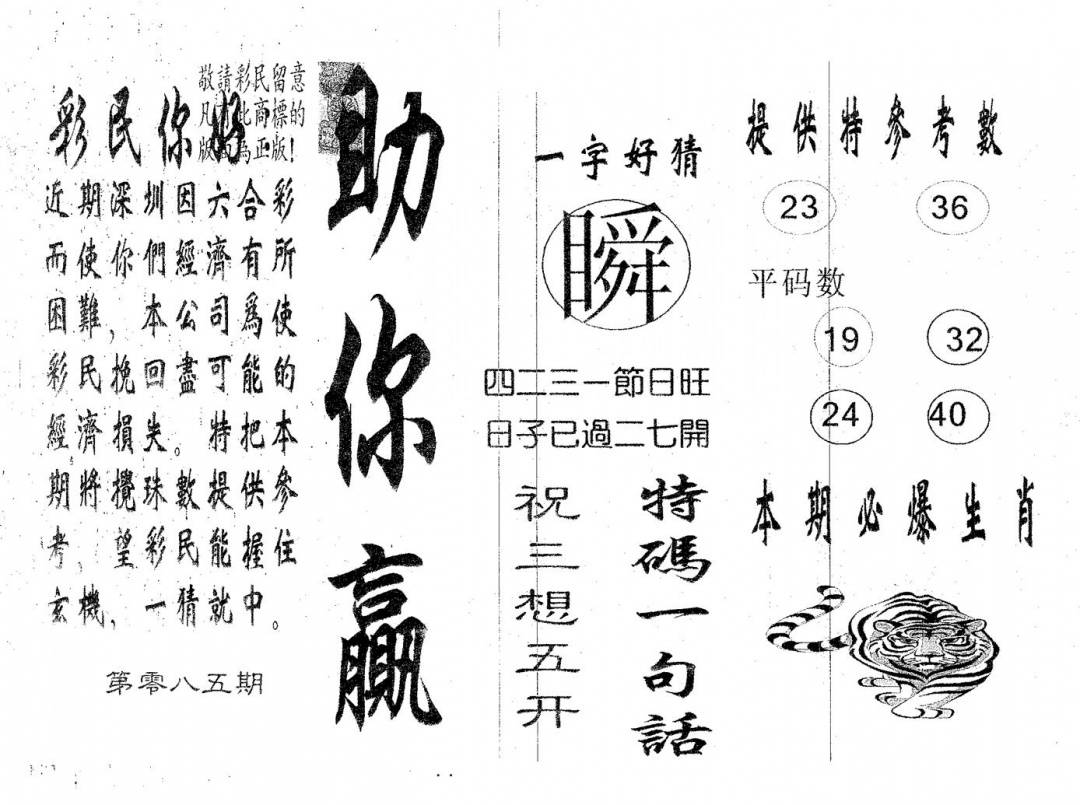 敬請彩民留意
凡有此商標的
版面為正版!
彩民你好
近期深圳因六合彩
而使你們經濟有所
困難，本公司爲使
彩民挽回盡可能的
經濟損失。特把本
期將攪珠數提供參
考，望彩民能握住
玄機，一猜就中。
第零八五期
助你贏
一字好猜
瞬
四二三一節日旺
日子已過二七開
特碼一句話
祝三想五开
提供特參考數
23 36
平码数
19 32
24 40
本期必爆生肖